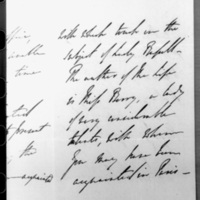 with which touch on the
subject of Lady Russell.
The author of the life
is Miss Berry, a lady
of very considerable
talents, with whom
you may have been
acquainted in Paris
time
the